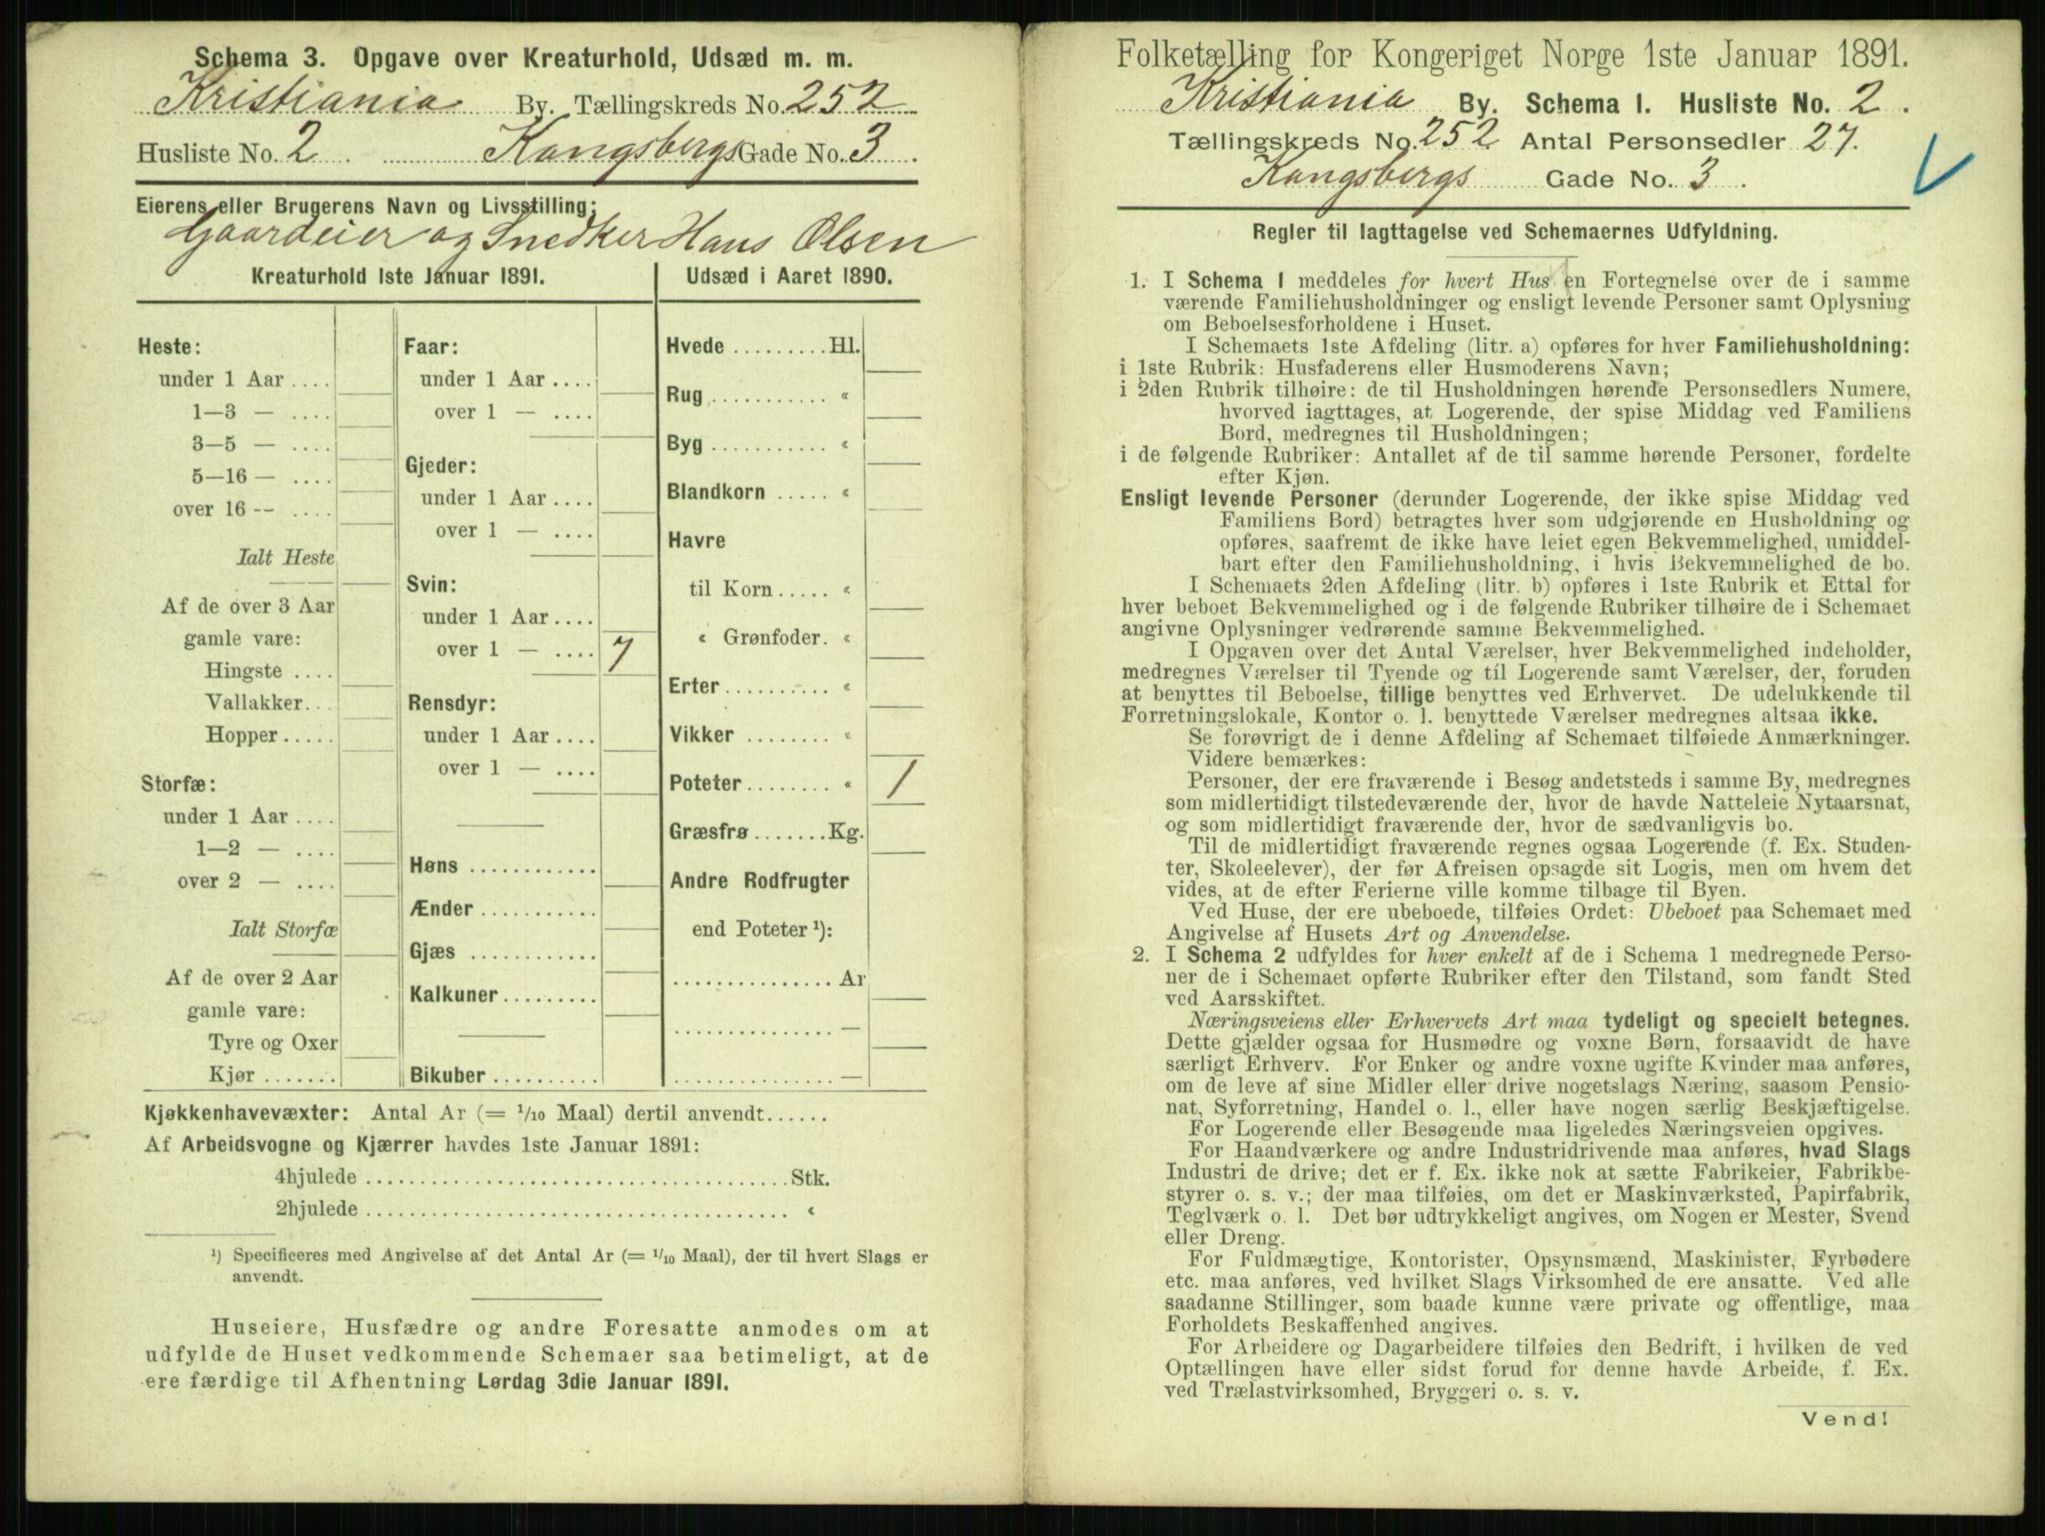 Schema 3. Opgave over Kreaturhold, Udsæd m. m.
Kristiania By. Tællingskreds No. 252
Husliste No. 2 . Kongsbergs Gade No. 3 .
Eierens eller Brugerens Navn og Livsstilling:
Gaardeier og Snedker Hans Olsen
Kreaturhold 1ste Januar 1891.
Heste:
under 1 Aar ....
1—3 — ....
3—5 — ....
5—16 — ....
over 16 -- ....
Ialt Heste
Af de over 3 Aar
gamle vare:
Hingste ....
Vallakker...
Hopper.....
Storfæ:
under 1 Aar ....
1—2 — ....
over 2 — ....
Ialt Storfæ
Af de over 2 Aar
gamle vare:
Tyre og Oxer
Kjør .......
Faar:
under 1 Aar ....
over 1 — ....
Gjeder:
under 1 Aar ....
over 1 — ....
Svin:
under 1 Aar ....
over 1 — .... 7
Rensdyr:
under 1 Aar ....
over 1 — ....
Høns ............
Ænder ...........
Gjæs ............
Kalkuner.........
Bikuber ..........
Udsæd i Aaret 1890.
Hvede .........Hl.
Rug ........... «
Byg ........... «
Blandkorn ..... «
Havre
til Korn ..... «
« Grønfoder. «
Erter .......... «
Vikker ........ «
Poteter ........ « 1
Græsfrø .......Kg.
Andre Rodfrugter
end Poteter ¹):
............... Ar
............... —
............... —
Kjøkkenhavevæxter: Antal Ar (= 1/10 Maal) dertil anvendt......
Af Arbeidsvogne og Kjærrer havdes 1ste Januar 1891:
4hjulede .......................................Stk.
2hjulede ....................................... «
¹) Specificeres med Angivelse af det Antal Ar (= 1/10 Maal), der til hvert Slags er
anvendt.
Huseiere, Husfædre og andre Foresatte anmodes om at
udfylde de Huset vedkommende Schemaer saa betimeligt, at de
ere færdige til Afhentning Lørdag 3die Januar 1891.
Folketælling for Kongeriget Norge 1ste Januar 1891.
Kristiania By. Schema 1. Husliste No. 2 .
Tællingskreds No. 252 Antal Personsedler 27.
Kongsbergs Gade No. 3 .
Regler til Iagttagelse ved Schemaernes Udfyldning.
1. I Schema 1 meddeles for hvert Hus en Fortegnelse over de i samme
værende Familiehusholdninger og ensligt levende Personer samt Oplysning
om Beboelsesforholdene i Huset.
I Schemaets 1ste Afdeling (litr. a) opføres for hver Familiehusholdning:
i 1ste Rubrik: Husfaderens eller Husmoderens Navn;
i 2den Rubrik tilhøire: de til Husholdningen hørende Personsedlers Numere,
hvorved iagttages, at Logerende, der spise Middag ved Familiens
Bord, medregnes til Husholdningen;
i de følgende Rubriker: Antallet af de til samme hørende Personer, fordelte
efter Kjøn.
Ensligt levende Personer (derunder Logerende, der ikke spise Middag ved
Familiens Bord) betragtes hver som udgjørende en Husholdning og
opføres, saafremt de ikke have leiet egen Bekvemmelighed, umiddel-
bart efter den Familiehusholdning, i hvis Bekvemmelighed de bo.
I Schemaets 2den Afdeling (litr. b) opføres i 1ste Rubrik et Ettal for
hver beboet Bekvemmelighed og i de følgende Rubriker tilhøire de i Schemaet
angivne Oplysninger vedrørende samme Bekvemmelighed.
I Opgaven over det Antal Værelser, hver Bekvemmelighed indeholder,
medregnes Værelser til Tyende og til Logerende samt Værelser, der, foruden
at benyttes til Beboelse, tillige benyttes ved Erhvervet. De udelukkende til
Forretningslokale, Kontor o. l. benyttede Værelser medregnes altsaa ikke.
Se forøvrigt de i denne Afdeling af Schemaet tilføiede Anmærkninger.
Videre bemærkes:
Personer, der ere fraværende i Besøg andetsteds i samme By, medregnes
som midlertidigt tilstedeværende der, hvor de havde Natteleie Nytaarsnat,
og som midlertidigt fraværende der, hvor de sædvanligvis bo.
Til de midlertidigt fraværende regnes ogsaa Logerende (f. Ex. Studen-
ter, Skoleelever), der før Afreisen opsagde sit Logis, men om hvem det
vides, at de efter Ferierne ville komme tilbage til Byen.
Ved Huse, der ere ubeboede, tilføies Ordet: Ubeboet paa Schemaet med
Angivelse af Husets Art og Anvendelse.
2. I Schema 2 udfyldes for hver enkelt af de i Schema 1 medregnede Perso-
ner de i Schemaet opførte Rubriker efter den Tilstand, som fandt Sted
ved Aarsskiftet.
Næringsveiens eller Erhvervets Art maa tydeligt og specielt betegnes.
Dette gjælder ogsaa for Husmødre og voxne Børn, forsaavidt de have
særligt Erhverv. For Enker og andre voxne ugifte Kvinder maa anføres,
om de leve af sine Midler eller drive nogetslags Næring, saasom Pensio-
nat, Syforretning, Handel o. l., eller have nogen særlig Beskjæftigelse.
For Logerende eller Besøgende maa ligeledes Næringsveien opgives.
For Haandværkere og andre Industridrivende maa anføres, hvad Slags
Industri de drive; det er f. Ex. ikke nok at sætte Fabrikeier, Fabrikbe-
styrer o. s. v.; der maa tilføies, om det er Maskinværksted, Papirfabrik,
Teglværk o. l. Det bør udtrykkeligt angives, om Nogen er Mester, Svend
eller Dreng.
For Fuldmægtige, Kontorister, Opsynsmænd, Maskinister, Fyrbødere
etc. maa anføres, ved hvilket Slags Virksomhed de ere ansatte. Ved alle
saadanne Stillinger, som baade kunne være private og offentlige, maa
Forholdets Beskaffenhed angives.
For Arbeidere og Dagarbeidere tilføies den Bedrift, i hvilken de ved
Optællingen have eller sidst forud for denne havde Arbeide, f. Ex.
ved Trælastvirksomhed, Bryggeri o. s. v.
Vend!